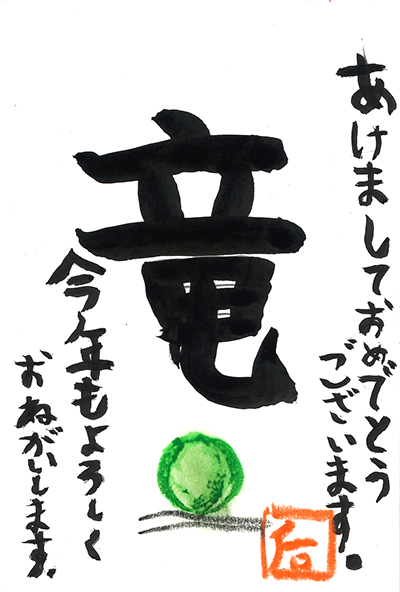 あけましておめでとう
ございます。
竜
今年もよろしく
おねがいします。